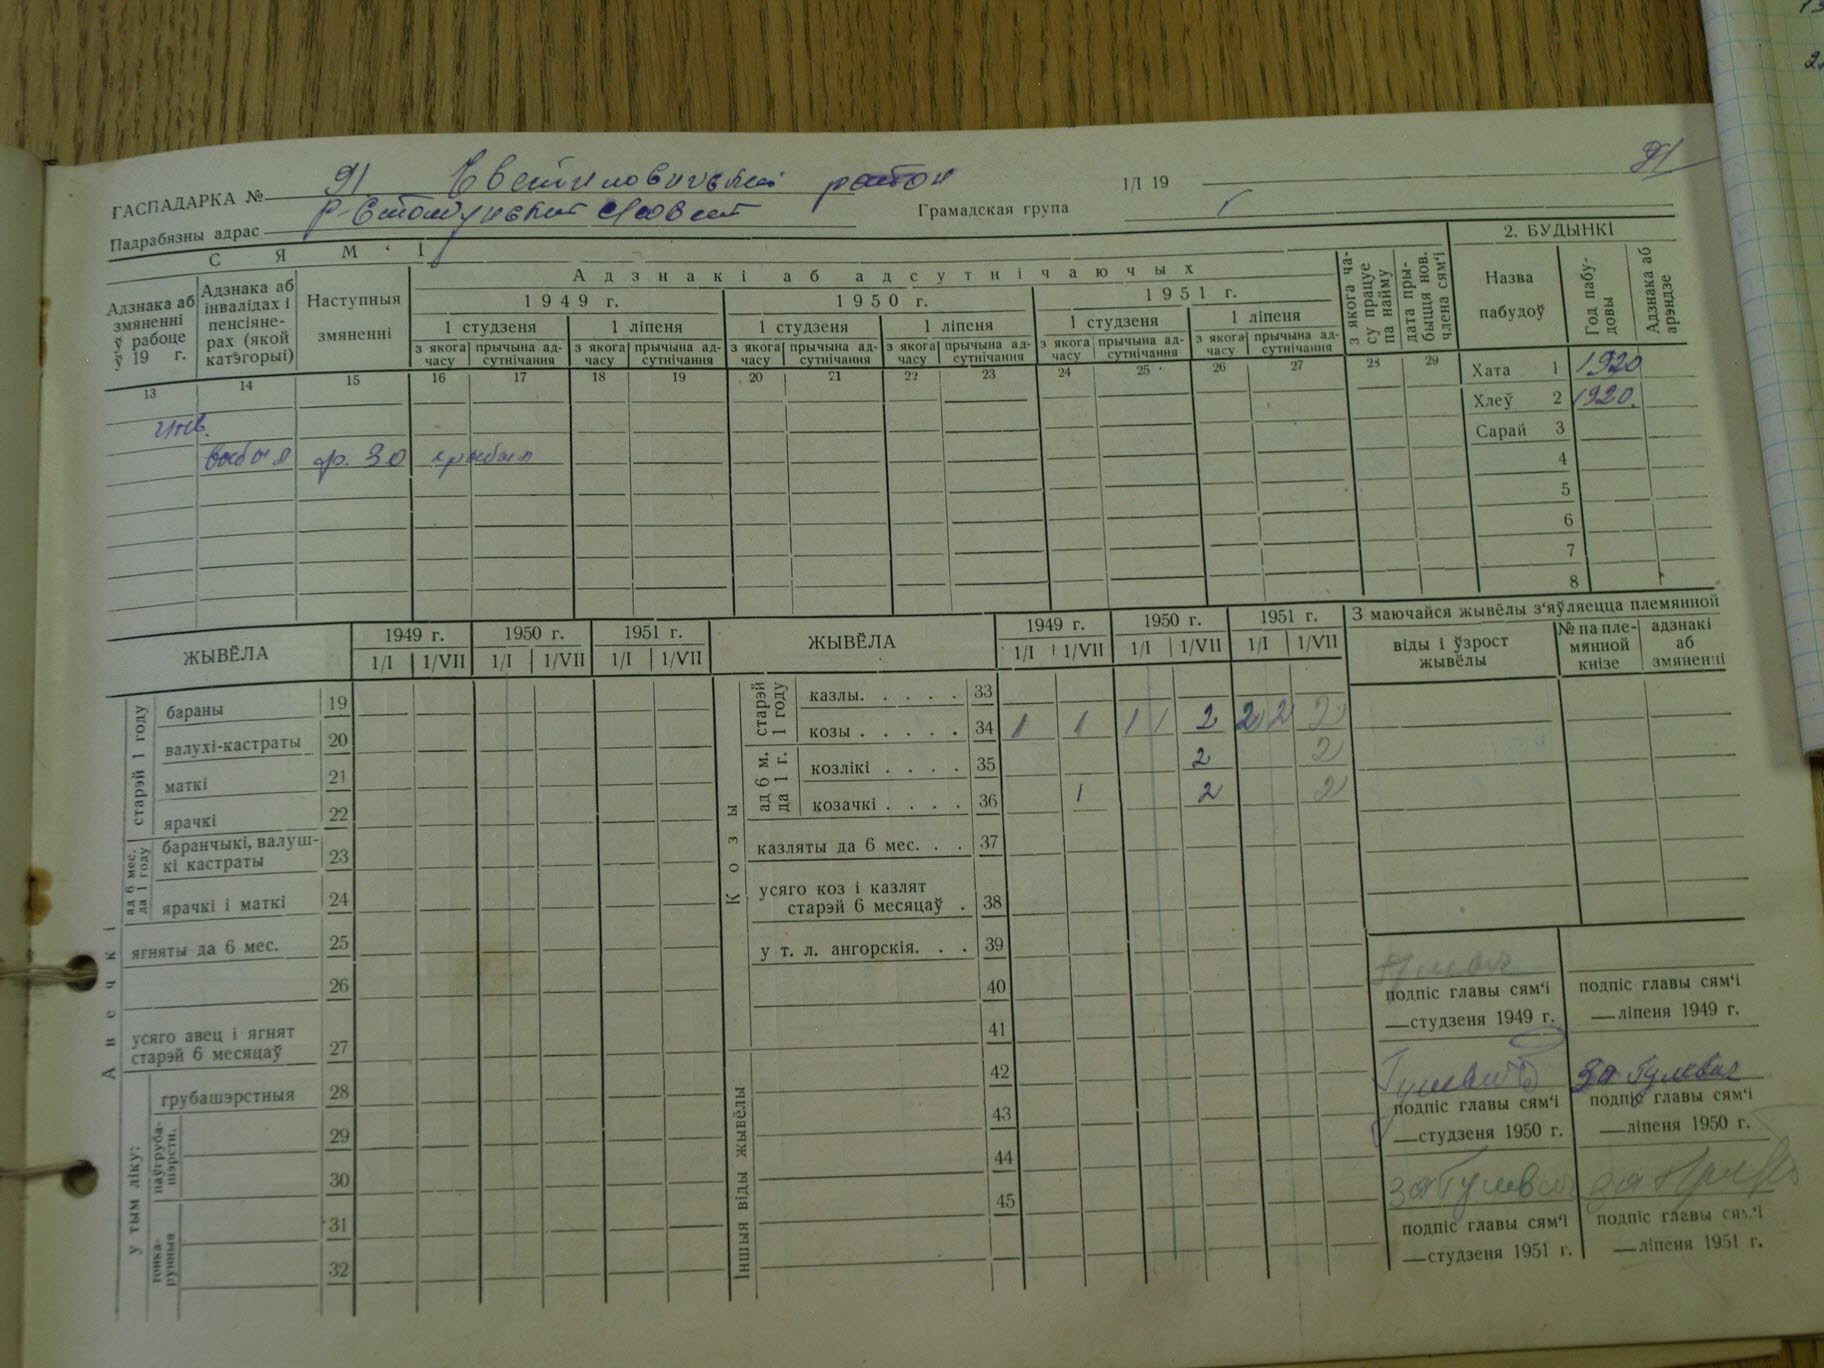 ГАСПАДАРКА № 91 район 1/I 19 91
Падрабязны адрас Грамадская група
С Я М ' І
2. БУДЫНКІ
Адзнака аб змяненні ў рабоце ў 19 г.
Адзнака аб інвалідах і пенсіяне-рах (якой катэгорыі)
Наступныя змяненні
Адзнакі аб адсутнічаючых
1949 г. 1950 г. 1951 г.
1 студзеня 1 ліпеня 1 студзеня 1 ліпеня 1 студзеня 1 ліпеня
з якога часу прычына ад-сутнічання з якога часу прычына ад-сутнічання з якога часу прычына ад-сутнічання з якога часу прычына ад-сутнічання з якога часу прычына ад-сутнічання з якога часу прычына ад-сутнічання
з якога ча-су працуе па найму
дата пры-быцця нов. члена сям'і
Назва пабудоў
Год пабу-довы
Адзнака аб арэндзе
13 14 15 16 17 18 19 20 21 22 23 24 25 26 27 28 29
Хата 1 1920
Хлеў 2 1920.
Сарай 3
4
5
6
7
8
выбыл 30
ЖЫВЁЛА 1949 г. 1950 г. 1951 г.
1/I 1/VII 1/I 1/VII 1/I 1/VII
Авечкі
старэй 1 году
бараны 19
валухі-кастраты 20
маткі 21
ярачкі 22
ад 6 мес. да 1 году
баранчыкі, валуш-кі кастраты 23
ярачкі і маткі 24
ягняты да 6 мес. 25
26
усяго авец і ягнят старэй 6 месяцаў 27
у тым ліку:
грубашэрстныя 28
паўгруба-шэрсти.
29
30
тонка-рунныя
31
32
ЖЫВЁЛА 1949 г. 1950 г. 1951 г.
1/I 1/VII 1/I 1/VII 1/I 1/VII
Козы
старэй 1 году
казлы. . . . . 33
козы . . . . . 34 1 1 1 1 2 2 2 2
ад 6 м. да 1 г.
козлікі . . . . 35 2 2
козачкі . . . . 36 1 2 2
казляты да 6 мес. . . 37
усяго коз і казлят старэй 6 месяцаў . 38
у т. л. ангорскія. . . 39
40
41
Іншыя віды жывёлы
42
43
44
45
З маючайся жывёлы з'яўляецца племянной
віды і ўзрост жывёлы
№ па пле-мянной кнізе
адзнакі аб змяненні
подпіс главы сям'і
—студзеня 1949 г.
подпіс главы сям'і
—ліпеня 1949 г.
Гулевич
за Гулевич
подпіс главы сям'і
—студзеня 1950 г.
подпіс главы сям'і
—ліпеня 1950 г.
за Гулевич
подпіс главы сям'і
—студзеня 1951 г.
подпіс главы сям'і
—ліпеня 1951 г.